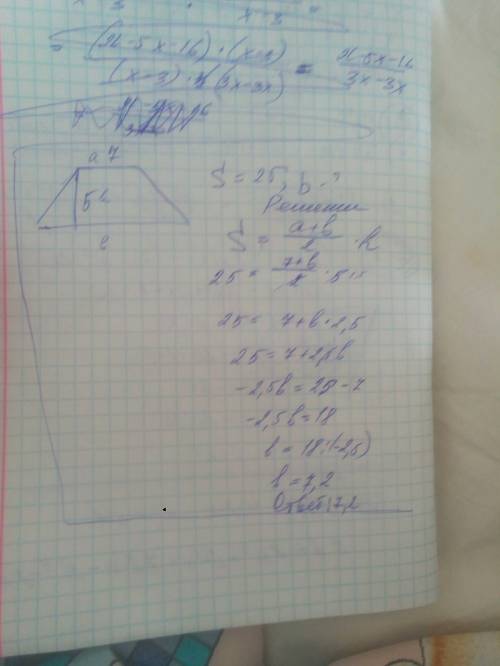 x-3
= (21-5x-16)·(x-3) / (x-3)·(3x-3x) = 21-5x-16 / 3x-3x
a 7
5 h
в
S = 25, b - ?
Решение
S = a+b / 2 · h
25 = 7+b / 2 · 5
25 = 7+b·2,5
25 = 7+2,5b
-2,5b = 25-7
-2,5b = 18
b = 18:(-2,5)
b = 7,2
Ответ: 7,2